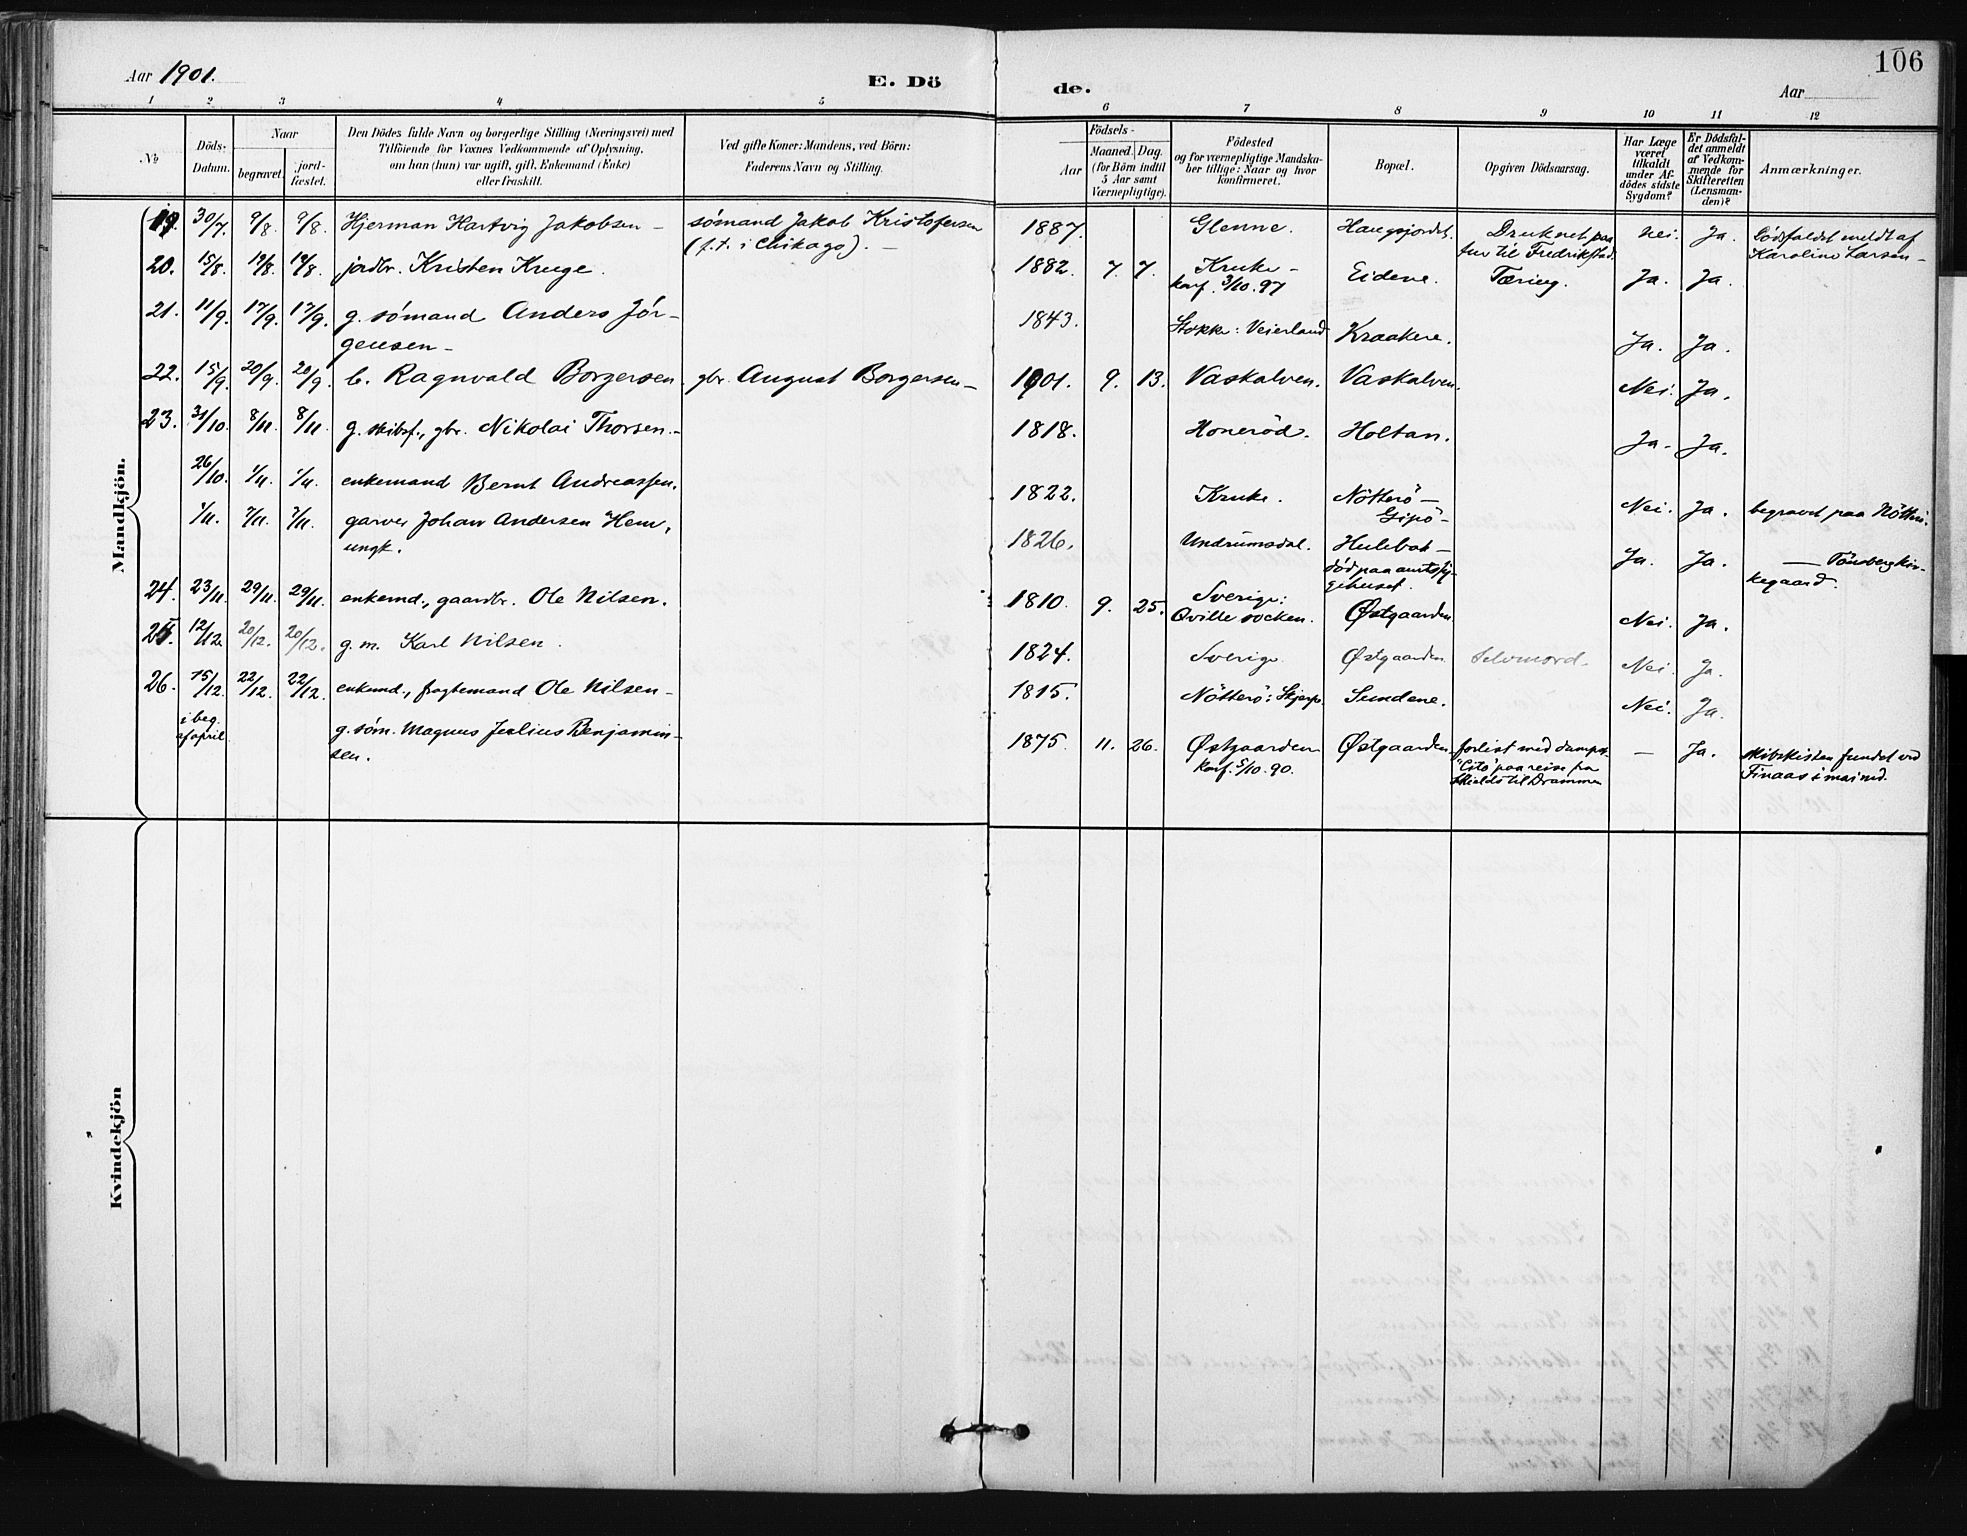 106
Aar 1901. E. Dö de. Aar
1 2 3 4 5 6 7 8 9 10 11 12
№
Döds-Datum.
Naar
begravet.
jord-fæstet.
Den Dödes fulde Navn og borgerlige Stilling (Næringsvei) med
Tilföiende for Voxnes Vedkommende af Oplysning,
om han (hun) var ugift, gift, Enkemand (Enke)
eller fraskilt.
Ved gifte Koner: Mandens, ved Börn:
Faderens Navn og Stilling.
Födsels-
Aar
Maaned. Dag.
(for Börn indtil
5 Aar samt
Værnepligtige).
Födested
og for værnepligtige Mandska-
ber tillige: Naar og hvor
konfirmeret.
Bopæl.
Opgiven Dödsaarsag.
Har Læge
været
tilkaldt
under Af-
dödes sidste
Sygdom?
Er Dödsfal-
det anmeldt
af Vedkom-
mende for
Skifteretten
(Lensman-
den)?
Anmærkninger.
Mandkjön.
19. 30/7. 9/8. 9/8. Hjerman Hartvig Jakobsen – sømand Jakob Kristofersen 1887. Glenne. Haugsjordet. Druknet paa Nei. Ja. Dödsfaldet meldt af
(f.t. i Chikago). – tur til Fredrikstad. Karoline Larsen –
20. 15/8. 19/8. 19/8. jordbr. Kristen Kruge. 1882. 7. 7. Kruke – Eidene. Tæring. Ja. Ja.
konf. 3/10. 97
21. 11/9. 17/9. 17/9. g. sømand Anders Jör- 1843. Stokke: Veierland Kraakere. Ja. Ja.
gensen –
22. 15/9. 20/9. 20/9. b. Ragnvald Borgersen gbr. August Borgersen – 1901. 9. 13. Vaskalven. Vaskalven. Nei. Ja.
23. 31/10. 8/11. 8/11. g. skibsf., gbr. Nikolai Thorsen. – 1818. Honeröd. Holtan. Ja. Ja.
26/10. 1/11. 1/11. enkemand Bernt Andreassen. 1822. Kruke. Nötterö – Nei. Ja. begravet paa Nötterö.
Gipö –
1/11. 7/11. 7/11. garver Johan Andersen Hem, 1826. Undrumsdal. Hulebak – Ja. Ja. — Tönsberg kir-
ungk. död paa amtssy- kegaard.
gehuset.
24. 23/11. 29/11. 29/11. enkemd., gaardbr. Ole Nilsen. 1810. 9. 25. Sverige: Østgaarden. Nei. Ja.
Qville socken.
25. 12/12. 20/12. 20/12. g. m. Karl Nilsen. 1824. Sverige. Østgaarden. Selvmord. Nei. Ja.
26. 15/12. 22/12. 22/12. enkemd., fragtemand Ole Nilsen – 1815. Nötterö: Skjerp. Sundene. Nei. Ja.
i beg. g. søm. Magnus Julius Benjamin- 1875. 11. 26. Østgaarden Østgaarden. forlist med dampsk. — Ja. skibskisten fundet ved
af april. sen. konf. 5/10. 90. "Cito" paa reise fra Finaas i mai md.
Shields til Drammen
Kvindekjön